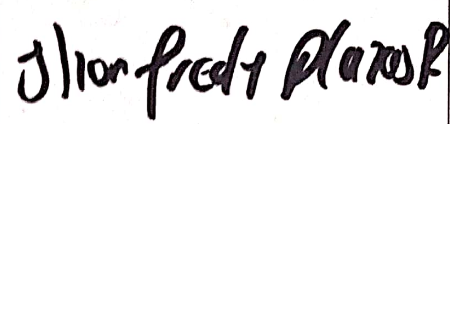 Jhon fredy Plazas R